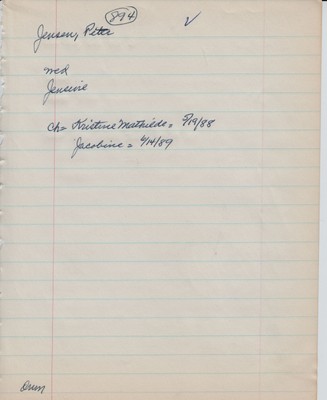 894 ✓
Jensen, Peter
md
Jensine
ch= Kristine Mathilde = 5/19/88
Jacobine = 4/14/89